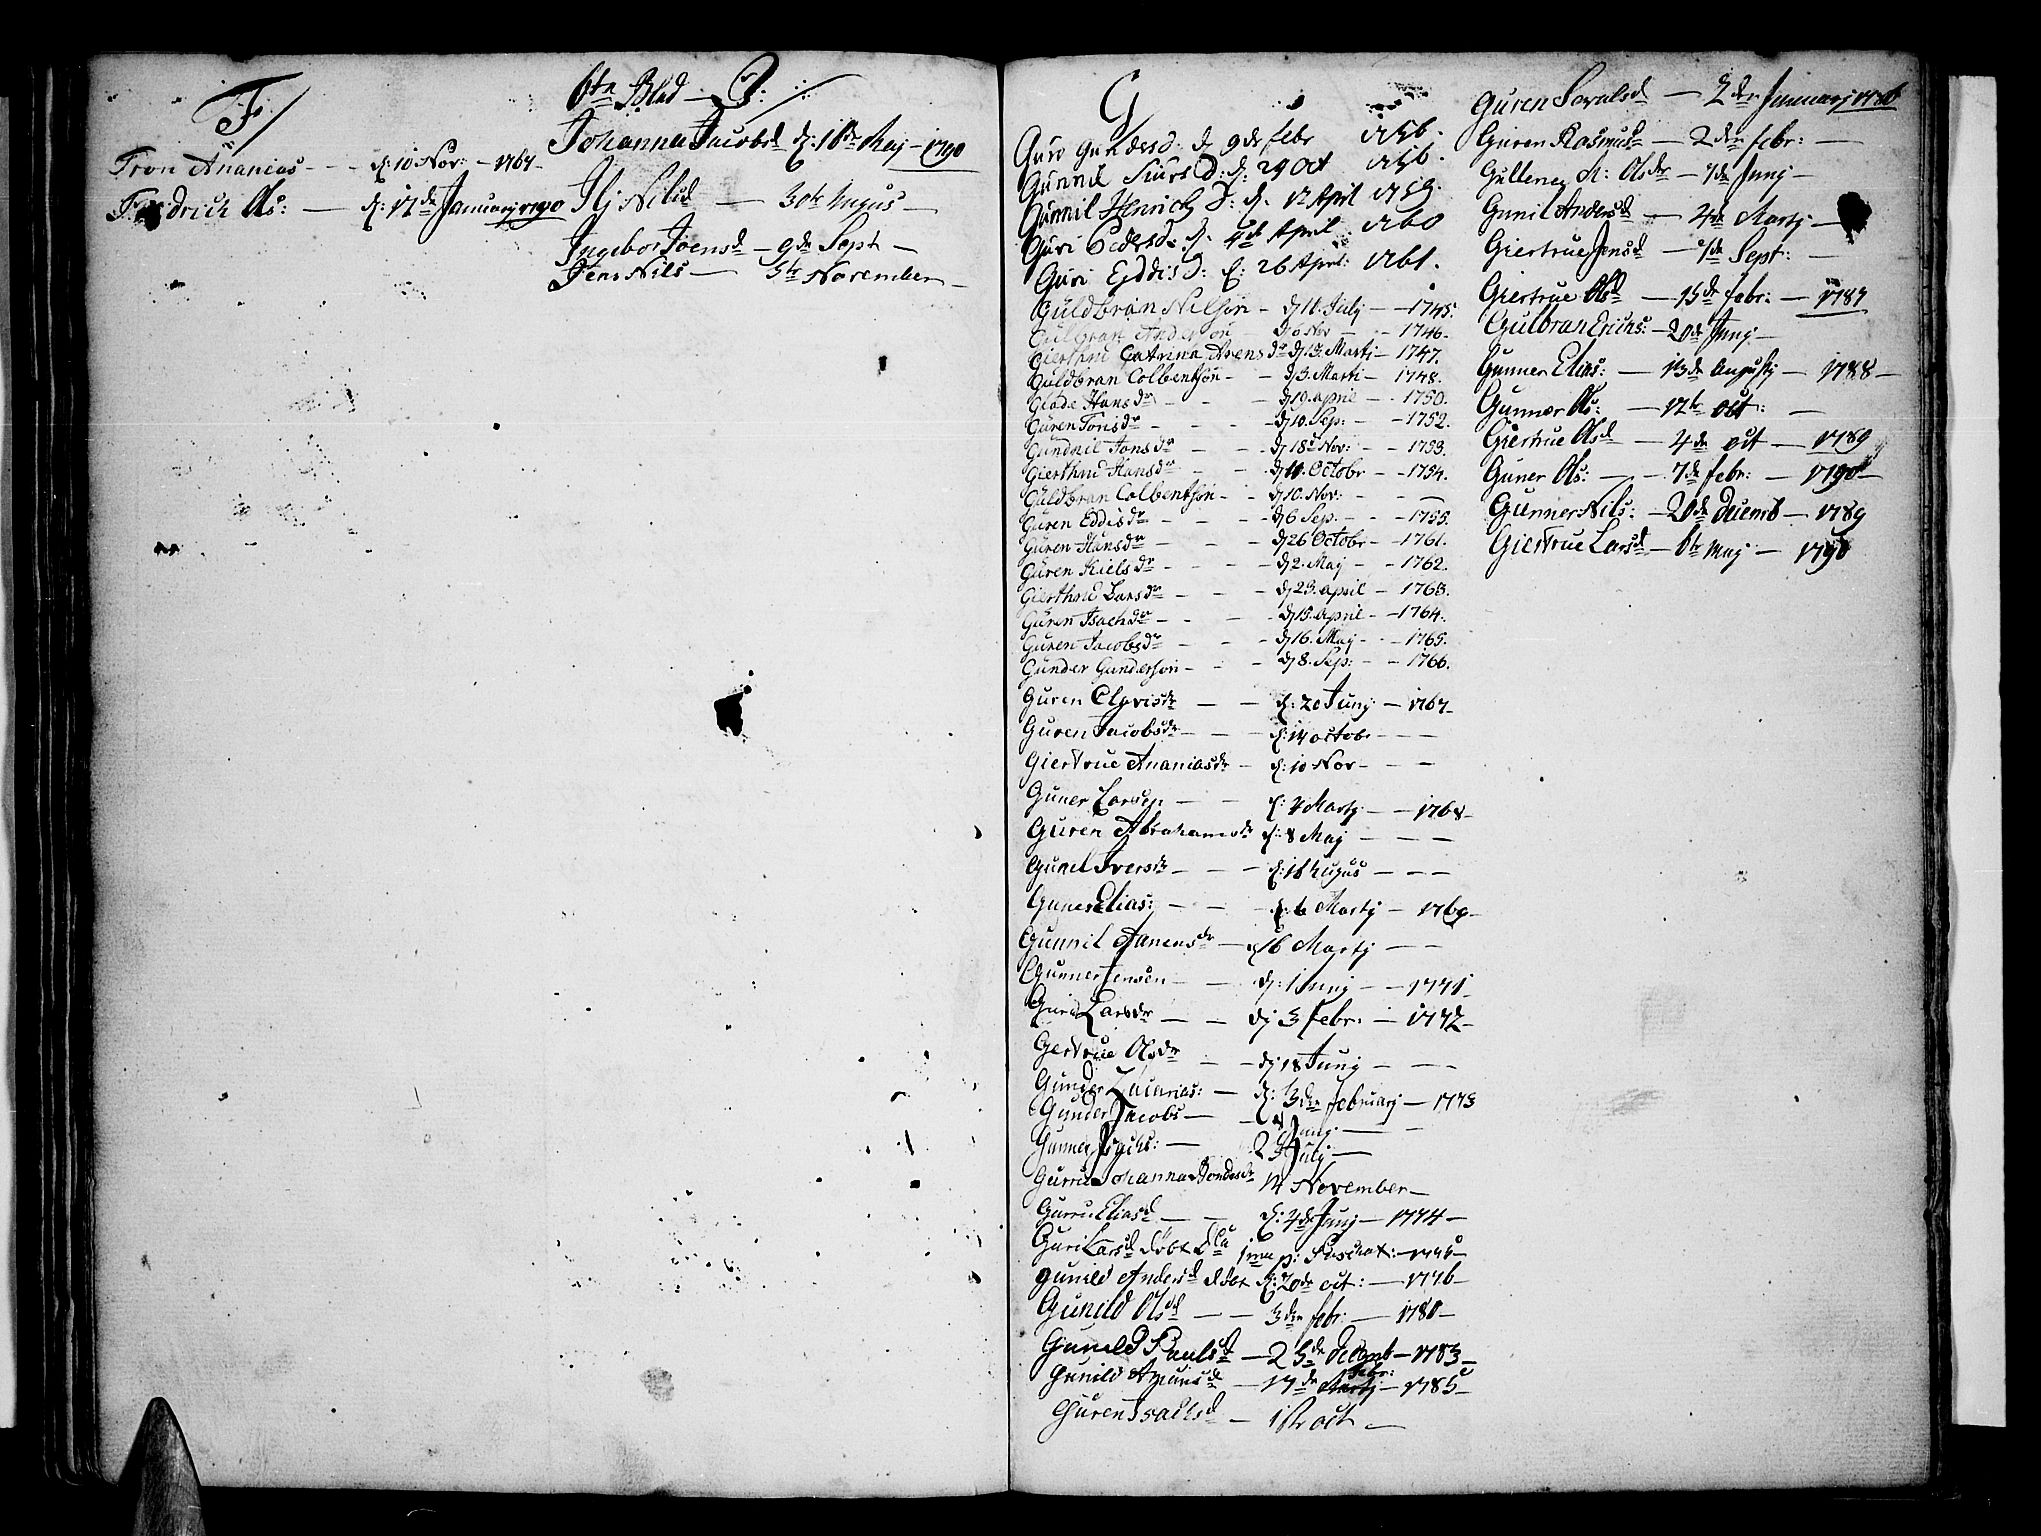 F./
Fron Ananias - - d: 10 Nov: - 1767-
Fredrich Ols: — d: 17de Januarj 1790
6te Blad - J: /
Johanna Jacobsd d: 16de Maj - 1790
Ilj Nilsd — 30te Augus —
Ingebor Joensd - 9de Sept -
Jens Nils — 5te November -
G
Guro Gundersd: d. 9de febr 1756.
Gunnil Siurs D: d: 29 Oct 1756.
Gunnil Henrich D: d. 12 April 1759.
Guri Peders d: d. 4de April 1760
Guri Eddis D: d: 26 April: 1761.
Guldbran Nilsøn - dj 11. Julj — 1745.
Gulbran Andersøn - dj 6 Nov - - 1746.
Gierthrud Catrina Arens dr dj 13. Martj - 1747.
Guldbran Colbentsøn - - dj 3. Marti - 1748.
Giøde Hans dr - - - dj 19. april - - 1750.
Guren Tons dr - - - dj 10. Sep: - - 1752.
Gundnil Jons dr - - - dj 18d Nov: - - 1753.
Gierthrud Hans dr - - - dj 11. Octobr - - 1754.
Guldbran Colbentsøn - - dj 10. Nov: - - —
Guren Eddis dr - - - dj 6 Sep. - - - 1755.
Guren Hans dr - - - dj 26 Octobr - - 1761.
Guren Kiels dr - - - - dj 2. Maj - - 1762.
Gierthrud Lars dr - - - dj 23. april - 1763.
Guren Isach dr - - - dj 15. april - - 1764.
Guren Jacobs dr - - - dj 16. Maj - - 1765.
Gunder Gundersøn - - - dj 8. Sep: - - 1766.
Guren Elgvis dr — — d: 20 Junj — 1767-
Guren Jacobs dr — — d: 14 octobr - - -
Giertrue Ananias dr - d: 10 Nov - - -
Guner Larsen — — d: 4 Martj — 1768-
Guren Abrahams dr d: 8 Maj - - -
Gunel Ivers dr — - - d: 18 Augus - - -
Guner Elias: - - - d: 6 Martj - 1769-
Gunnil Anens dr - d 16 Martj - -
Gunner Jensen - - dj: 1 Junij - - 1771-
Guri Lars dr — — dj 3 febr: — 1772-
Gertrue Ols dr - - dj 18 Junij - - -
Gunder Zacarias: — d: 3den februarj — 1773
Gunder Jacobs — Junij - -
Gunner — 25 Julij —
Gurru Johanna dr 14 November —
Gurru Eliasd — — d: 4de Junj — 1774 —
Guri Larsd døbt D p: Paschat: - 1776-
Gunild Andersd døbt d: 20de oct: — 1776-
Gunild Olsd — — 3den febr — 1780 -
Gunild Paulsd — 25de decemb - 1783 -
Gunild — 17de febr: Martj - 1785 -
Guren Isachsd — 18te oct —
Guren — 2den Januarj 1786
Guren Rasmusd — 2den febr: —
Gulleney M: Olsder — 7de Junj —
Gunil Andersd — 4de Martj —
Giertrue Jensd — 1de Sept: —
Giertrue Olsd — 15de febr: — 1787
Gulbran Erichs: - 20de Junj —
Gunner Elias: — 13de Augustj — 1788 —
Gunner Ols: — 12te oct: —
Giertrue Olsd — 4de oct — 1789
Guner Ols: — - 7de febr: — 1790 —
Gunner Nils: — 20de decemb — 1789
Giertrue Larsd — 6te Maj — 1790